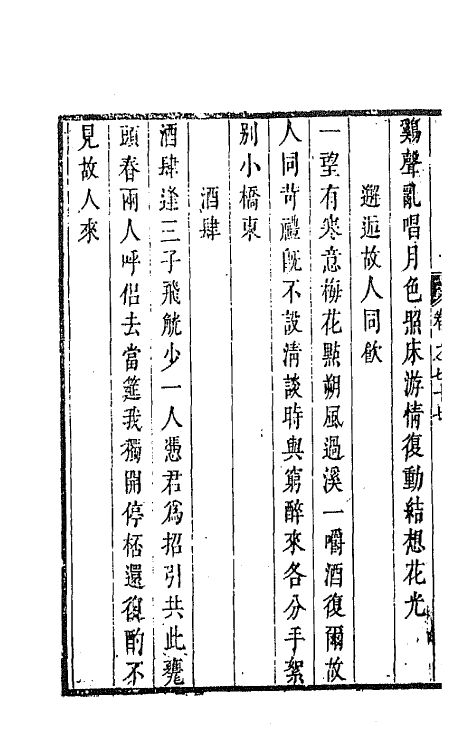 鷄聲亂唱月色照床游情復動結想花光
邂逅故人同飲
一望有寒意梅花點朔風過溪一嚼酒復爾故
人同苛禮旣不設清談時與窮醉來各分手絮
别小橋東
酒肆
酒肆逢三子飛觥少一人憑君爲招引共此甕
頭春兩人呼侶去當筵我獨開停桮還復酌不
見故人來